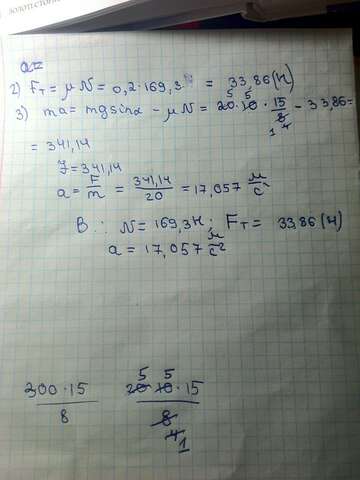 золот.столо
a=
2) Fт = μN = 0,2·169,3 = 33,86(Н)
3) ma = mgsinα - μN = 20·10 · 15/8 - 33,86 =
5 5
1 4
= 341,14
F = 341,14
a = F/m = 341,14/20 = 17,057 м/с
В: N = 169,3Н; Fт = 33,86(Н)
a = 17,057 м/с²
300·15/8
20 10·15/8
5 5
4 1